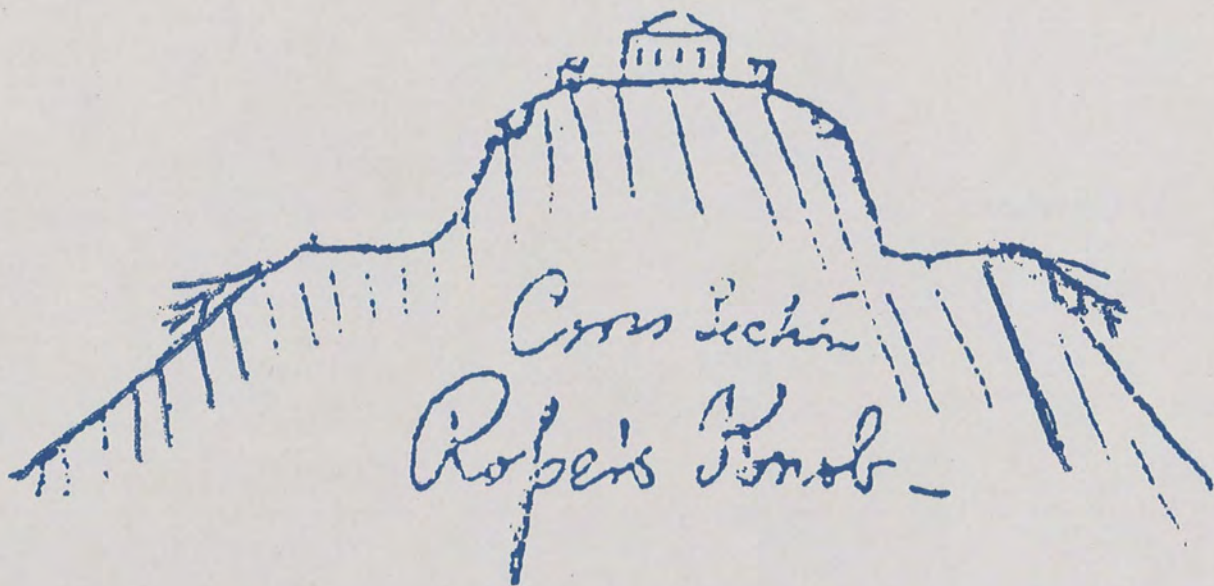 Cross Section
Roper's Knob -